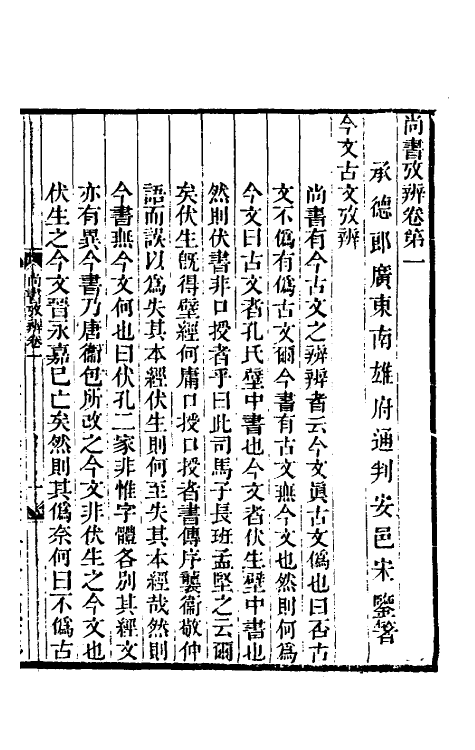 尚書攷辨卷第一
承德郎廣東南雄府通判安邑宋鑒著
今文古文攷辨
尚書有今古文之辨辨者云今文眞古文僞也曰否古
文不僞有僞古文爾今書有古文無今文也然則何爲
今文曰古文者孔氏壁中書也今文者伏生壁中書也
然則伏書非口授者乎曰此司馬子長班孟堅之云爾
矣伏生旣得壁經何庸口授口授者書傳序襲衞敬仲
語而誤以爲失其本經伏生則何至失其本經哉然則
今書無今文何也曰伏孔二家非惟字體各別其經文
亦有異今書乃唐衞包所改之今文非伏生之今文也
伏生之今文晉永嘉已亡矣然則其僞奈何曰不僞古
尚書攷辨卷一